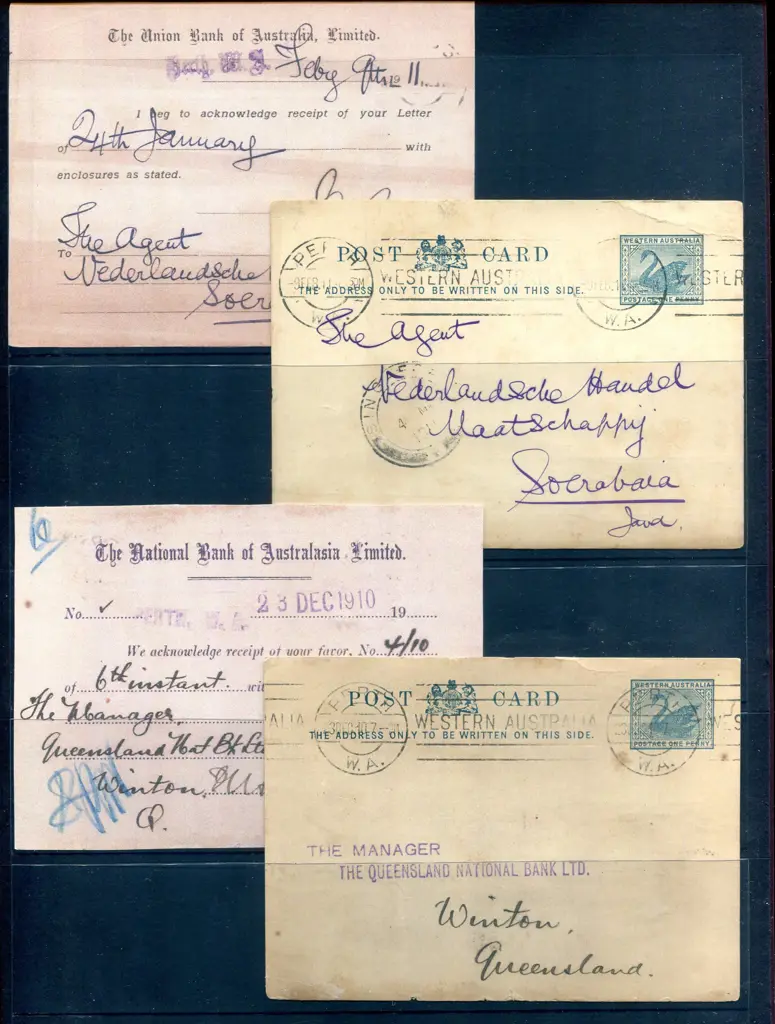 The Union Bank of Australia, Limited.
Perth, W.A.
Feby 9th 1911
I beg to acknowledge receipt of your Letter
of 24th January with
enclosures as stated.
The Agent
To
Nederlandsche
Soera
POST CARD
WESTERN AUSTRALIA
POSTAGE ONE PENNY
PERTH
W.A.
WESTERN AUST
WESTER
THE ADDRESS ONLY TO BE WRITTEN ON THIS SIDE.
The Agent
Nederlandsche Handel
Maatschappij
Soerabaia
Java.
The National Bank of Australasia Limited.
No. PERTH, W.A. 23 DEC 1910 19
We acknowledge receipt of your favor, No. 4/10
of 6th instant. wi
The Manager,
Queensland Nat Bk Ltd
Winton,
Q.
POST CARD
WESTERN AUSTRALIA
POSTAGE ONE PENNY
PERTH
W.A.
ALIA
WESTERN AUSTRALIA
WES
THE ADDRESS ONLY TO BE WRITTEN ON THIS SIDE.
W.A.
THE MANAGER
THE QUEENSLAND NATIONAL BANK LTD.
Winton,
Queensland.